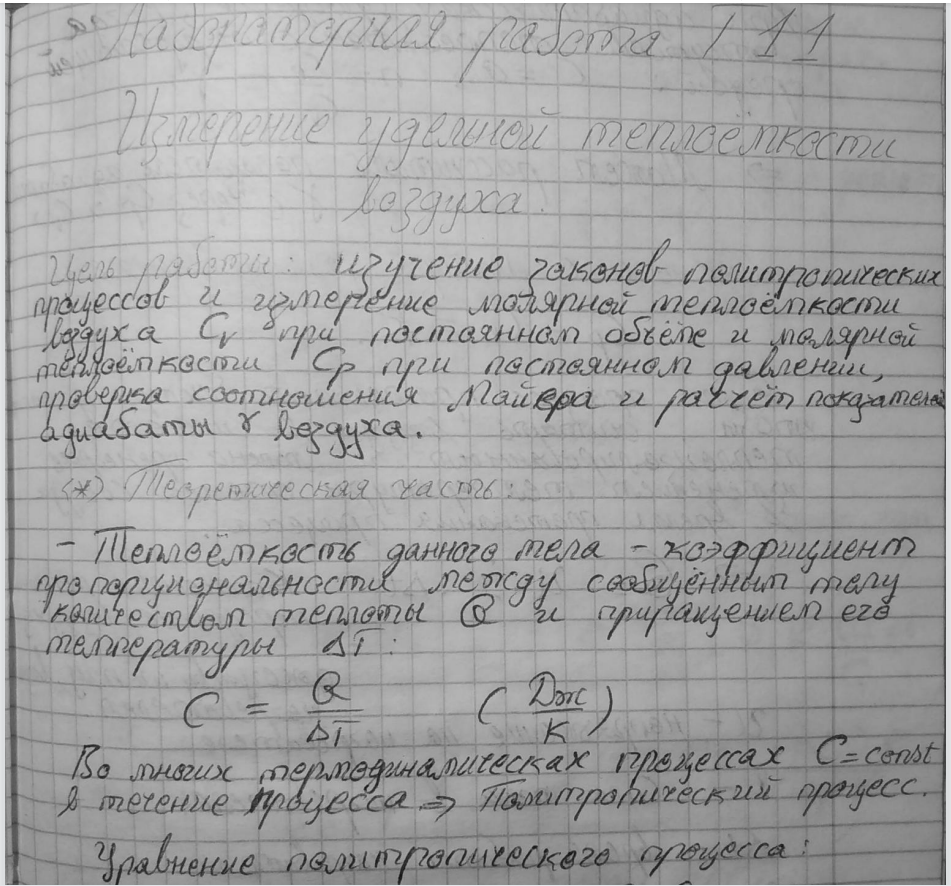 Лабораторная работа Т11
Измерение удельной теплоёмкости
воздуха.
Цель работы: изучение законов политропических
процессов и измерение молярной теплоёмкости
воздуха Cv при постоянном объёме и молярной
теплоёмкости Cp при постоянном давлении,
проверка соотношения Майера и расчёт показателей
адиабаты γ воздуха.
(*) Теоретическая часть:
- Теплоёмкость данного тела - коэффициент
пропорциональности между сообщённым телу
количеством теплоты Q и приращением его
температуры ΔT:
C = Q/ΔT (Дж/К)
Во многих термодинамическах процессах C=const
в течение процесса => Политропический процесс.
Уравнение политропического процесса: